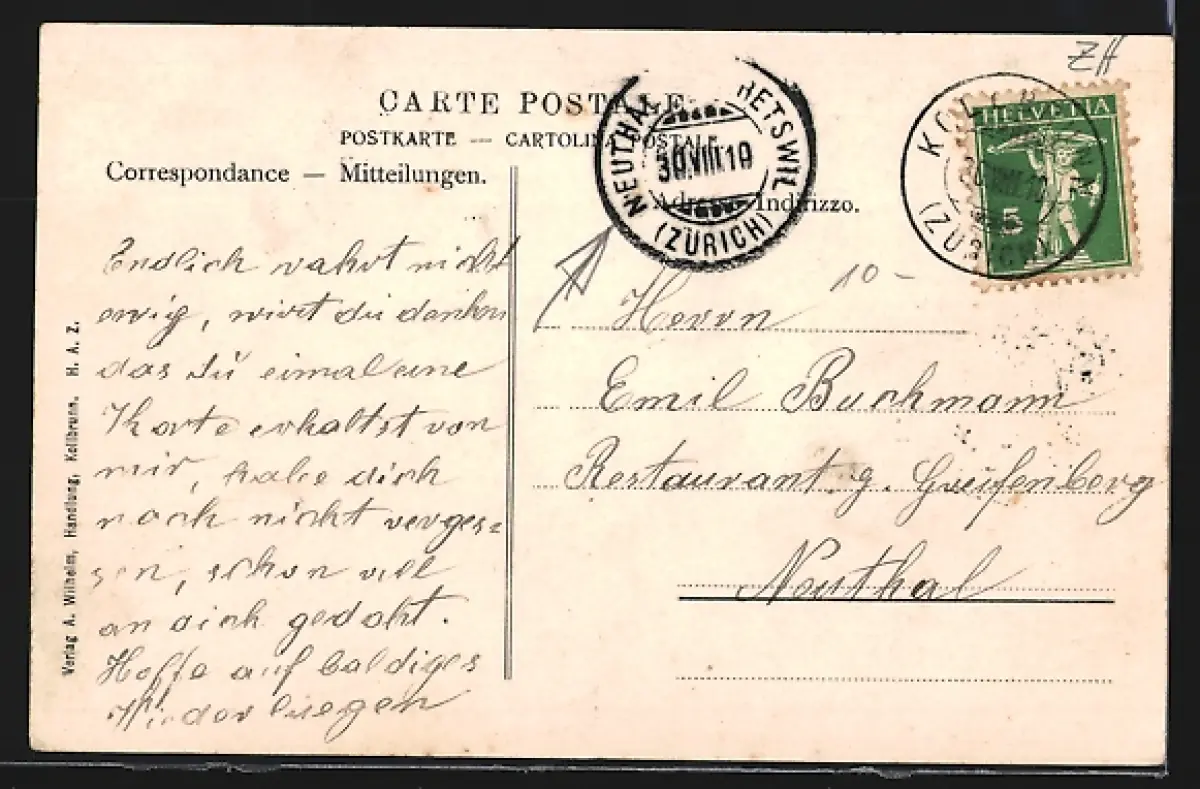 ZH
CARTE POSTALE
POSTKARTE — CARTOLINA POSTALE
Correspondance — Mitteilungen.
Adresse Indirizzo.
NEUTHAL RETSWIL
30.VIII.10
(ZÜRICH)
KOLLBRUNN
30.VIII.10
(ZÜRICH)
HELVETIA
5
10 –
Endlich wahrt nicht
ewig, wirst du denken
das Du eimal eine
Karte erhaltst von
mir, habe dich
noch nicht verges=
sen, schon viel
an dich gedaht.
Hoffe auf baldiges
Wiederluegen
Herrn
Emil Buchmann
Restaurant z. Greifenberg
Neuthal
Verlag A. Wilhelm, Handlung, Kollbrunn. H. A. Z.